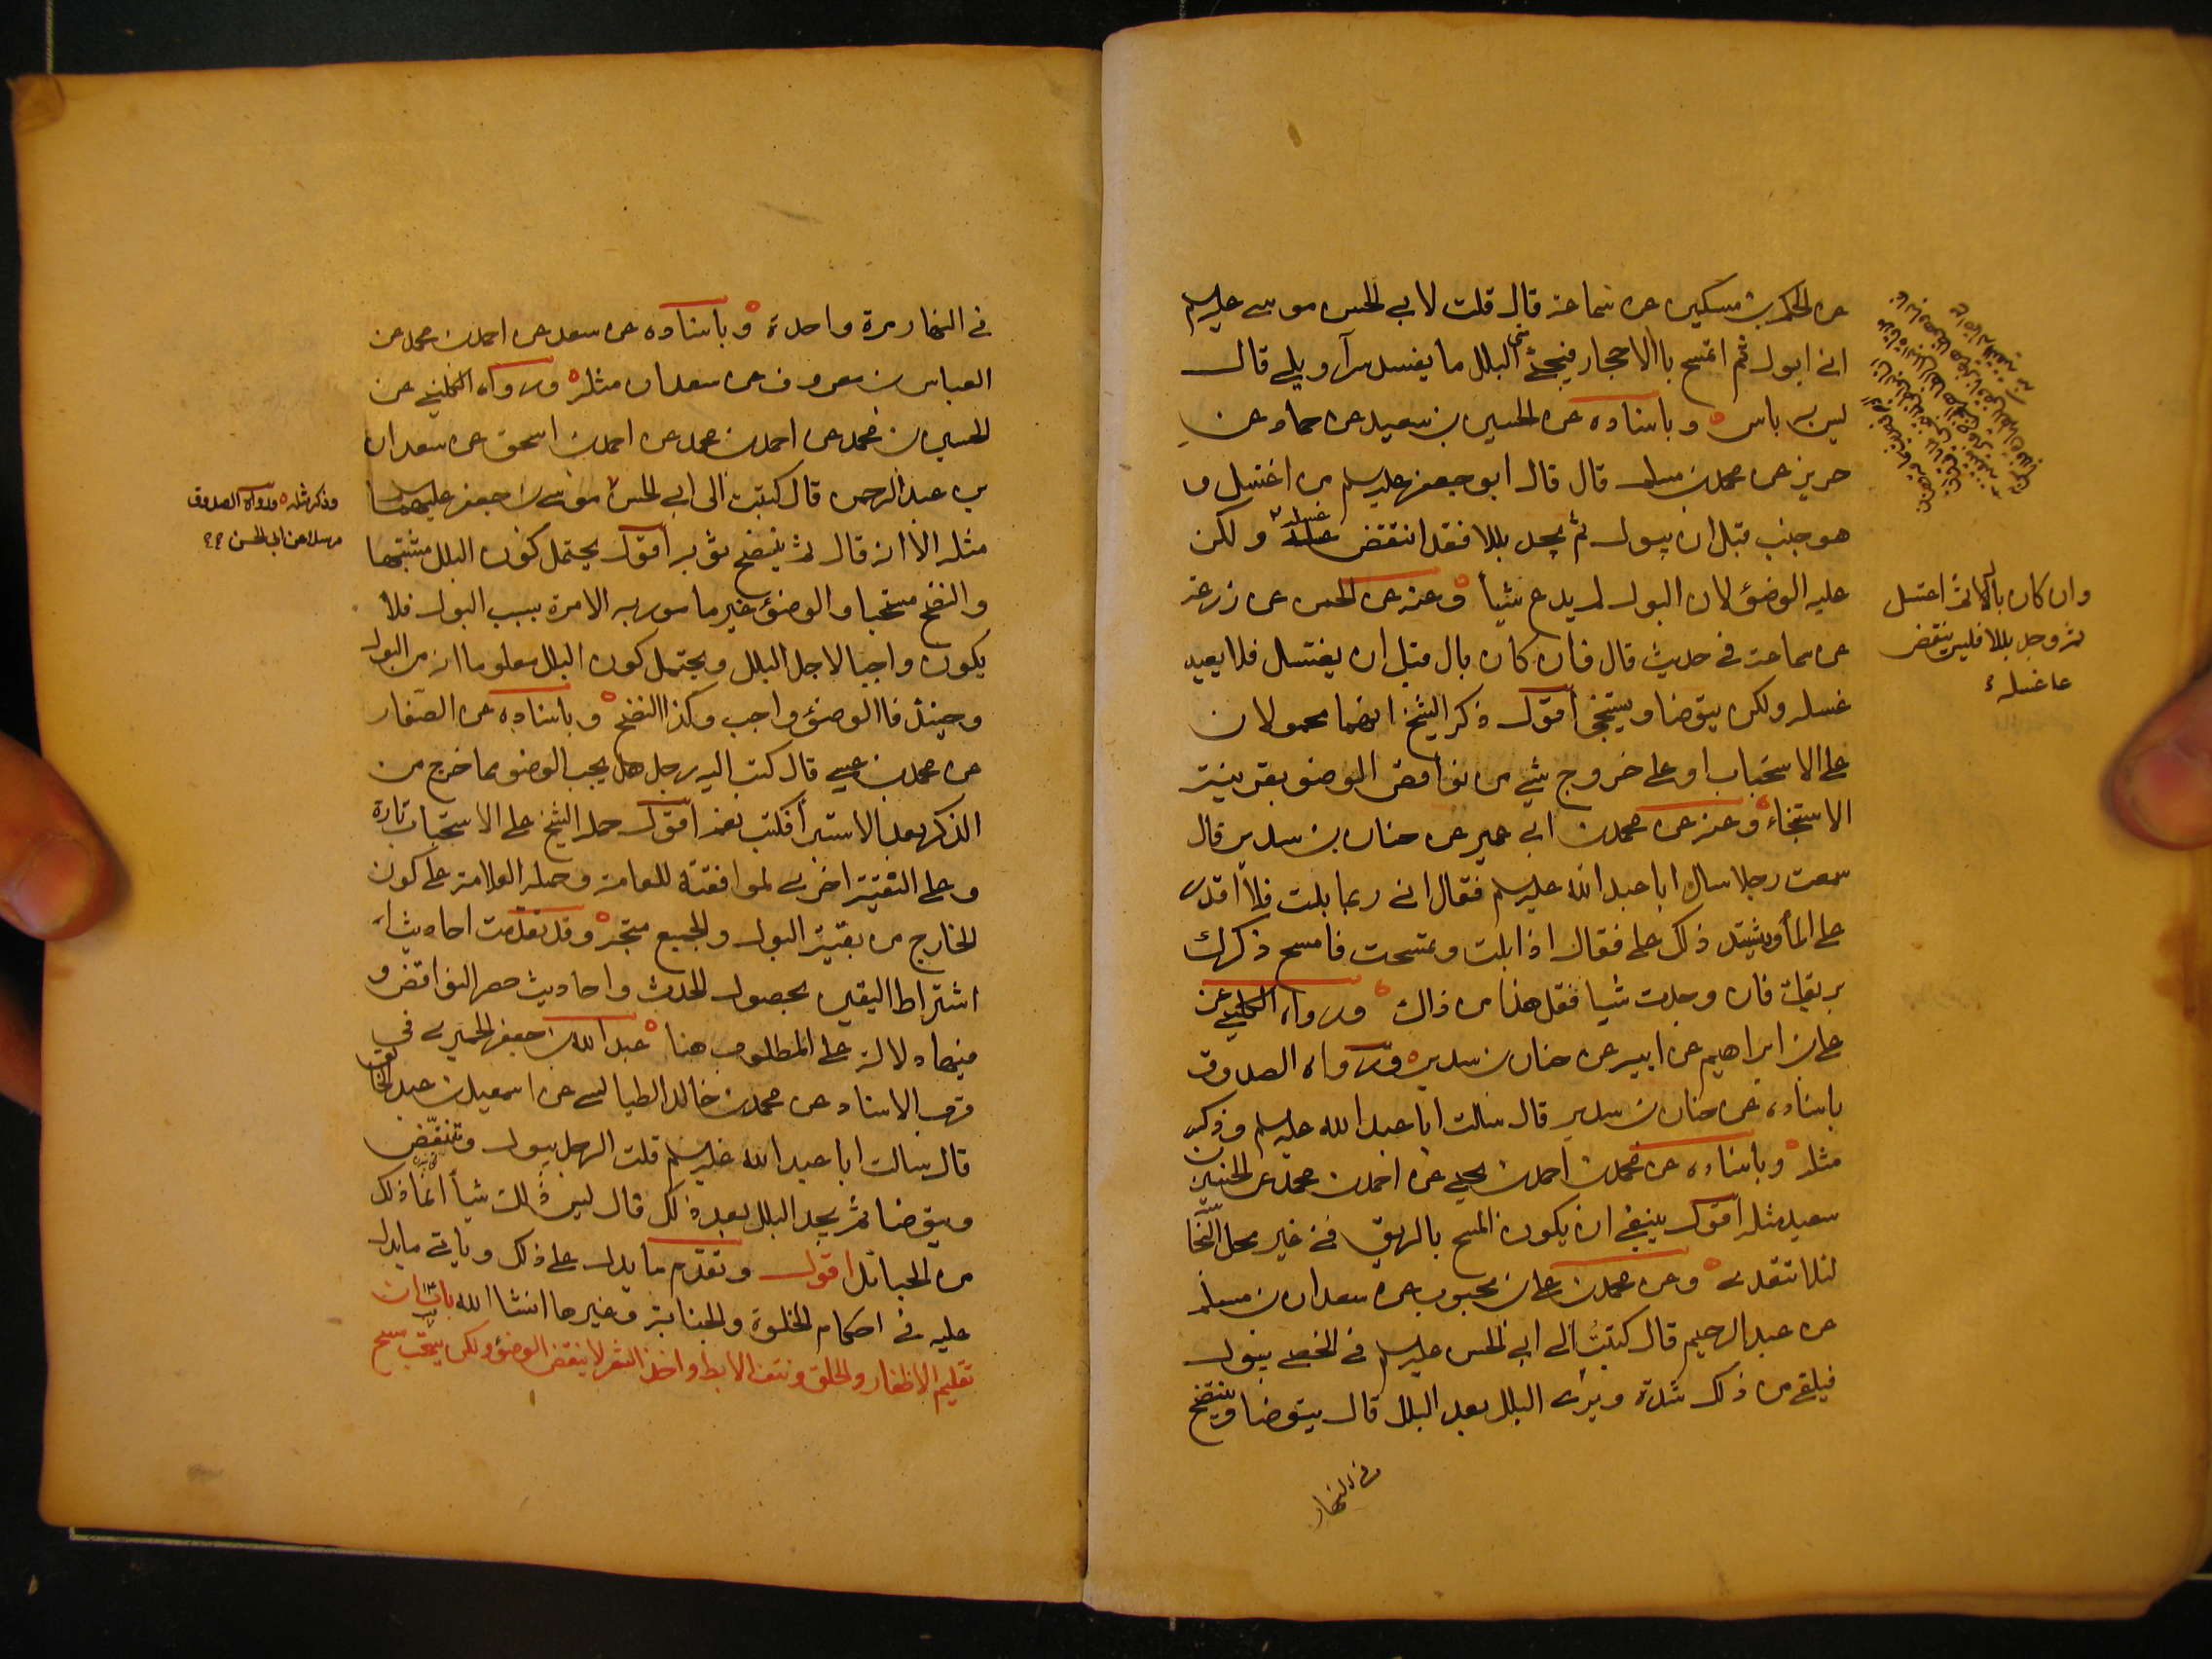 عن الحكم بن مسكين عن سماعة قال قلت لابي الحسن موسى عليه السلم
اني ابول ثم اتمسح بالاحجار فيجئ مني البلل ما يفسد سراويلي قال
ليس به باس وباسناده عن الحسين بن سعيد عن حماد عن
حريز عن محمد بن مسلم قال قال ابو جعفر عليه السلم من اغتسل و
هو جنب قبل ان يبول ثم يجد بللا فقد انتقض غسله ولكن
وان كان بال ثم اغتسل
ثم وجد بللا فليس ينقض
غسله
عليه الوضوء لان البول لم يدع شيأ وعنه عن الحسن عن زرعة
عن سماعة في حديث قال فان كان بال قبل ان يغتسل فلا يعيد
غسله ولكن يتوضا ويستنجي أقول ذكر الشيخ انهما محمولان
على الاستحباب او على خروج شي من نواقض الوضو بقرينة
الاستنجاء وعنه عن محمد بن ابي عمير عن حنان بن سدير قال
سمعت رجلا سال ابا عبد الله عليه السلم فقال اني ربما بلت فلا اقدر
على المأ ويشتد ذلك علي فقال اذا بلت وتمسحت فامسح ذكرك
بريقك فان وجدت شيا فقل هذا من ذاك ورواه الكليني عن
علي بن ابراهيم عن ابيه عن حنان بن سدير ورواه الصدوق
باسناده عن حنان بن سدير قال سالت ابا عبد الله عليه السلم وذكر
مثله وباسناده عن محمد بن احمد بن يحيى عن احمد بن محمد عن الحسين بن
سعيد مثله أقول ينبغي ان يكون المسح بالريق في غير محل النجا
لئلا تتعدى وعن محمد بن علي بن محبوب عن سعدان بن مسلم
عن عبد الرحيم قال كتبت الى ابي الحسن عليه السلم في الخصي يبول
فيلقى من ذلك شدة ويرى البلل بعد البلل قال يتوضا وينتضح
في النهار
في النهار مرة واحدة وباسناده عن سعد عن احمد بن محمد عن
العباس بن معروف عن سعدان مثله ورواه الكليني عن
الحسين بن محمد عن احمد بن محمد عن احمد بن اسحق عن سعدان
بن عبد الرحمن قال كتبت الى ابي الحسن موسى بن جعفر عليهما
وذكر مثله ورواه الصدوق
مرسلا عن ابي الحسن
مثله الا انه قال ثم ينضح ثوبه أقول يحتمل كون البلل مشتبها
والنضح مستحبا والوضوء غير مامور به الا مرة بسبب البول فلا
يكون واجبا لاجل البلل ويحتمل كون البلل معلوما انه من البول
وحينئذ فالوضوء واجب وكذا النضح وباسناده عن الصفار
عن محمد بن عيسى قال كتب اليه رجل هل يجب الوضو مما خرج من
الذكر بعد الاستبرأ فكتب نعم أقول حمله الشيخ على الاستحباب تارة
وعلى التقية اخرى لموافقته للعامة وحمله العلامة على كون
الخارج من بقية البول والجميع متجه وقد تقدمت احاديث
اشتراط اليقين بحصول الحدث واحاديث حصر النواقض و
فيهما دلالة على المطلوب هنا عبد الله بن جعفر الحميري في
قرب الاسناد عن محمد بن خالد الطيالسي عن اسمعيل بن عبد الخالق
قال سالت ابا عبد الله عليه السلم قلت الرجل يبول وينتفض
ويتوضا ثم يجد البلل بعد ذلك قال ليس ذلك شيأ انما ذلك
من الحبائل اقول وتقدم ما يدل على ذلك وياتي ما يدل
عليه في احكام الخلوة والجنابة وغيرها انشا الله باب ان
تقليم الاظفار والحلق ونتف الابط واخذ الشعر لا ينقض الوضوء ولكن يستحب مسح